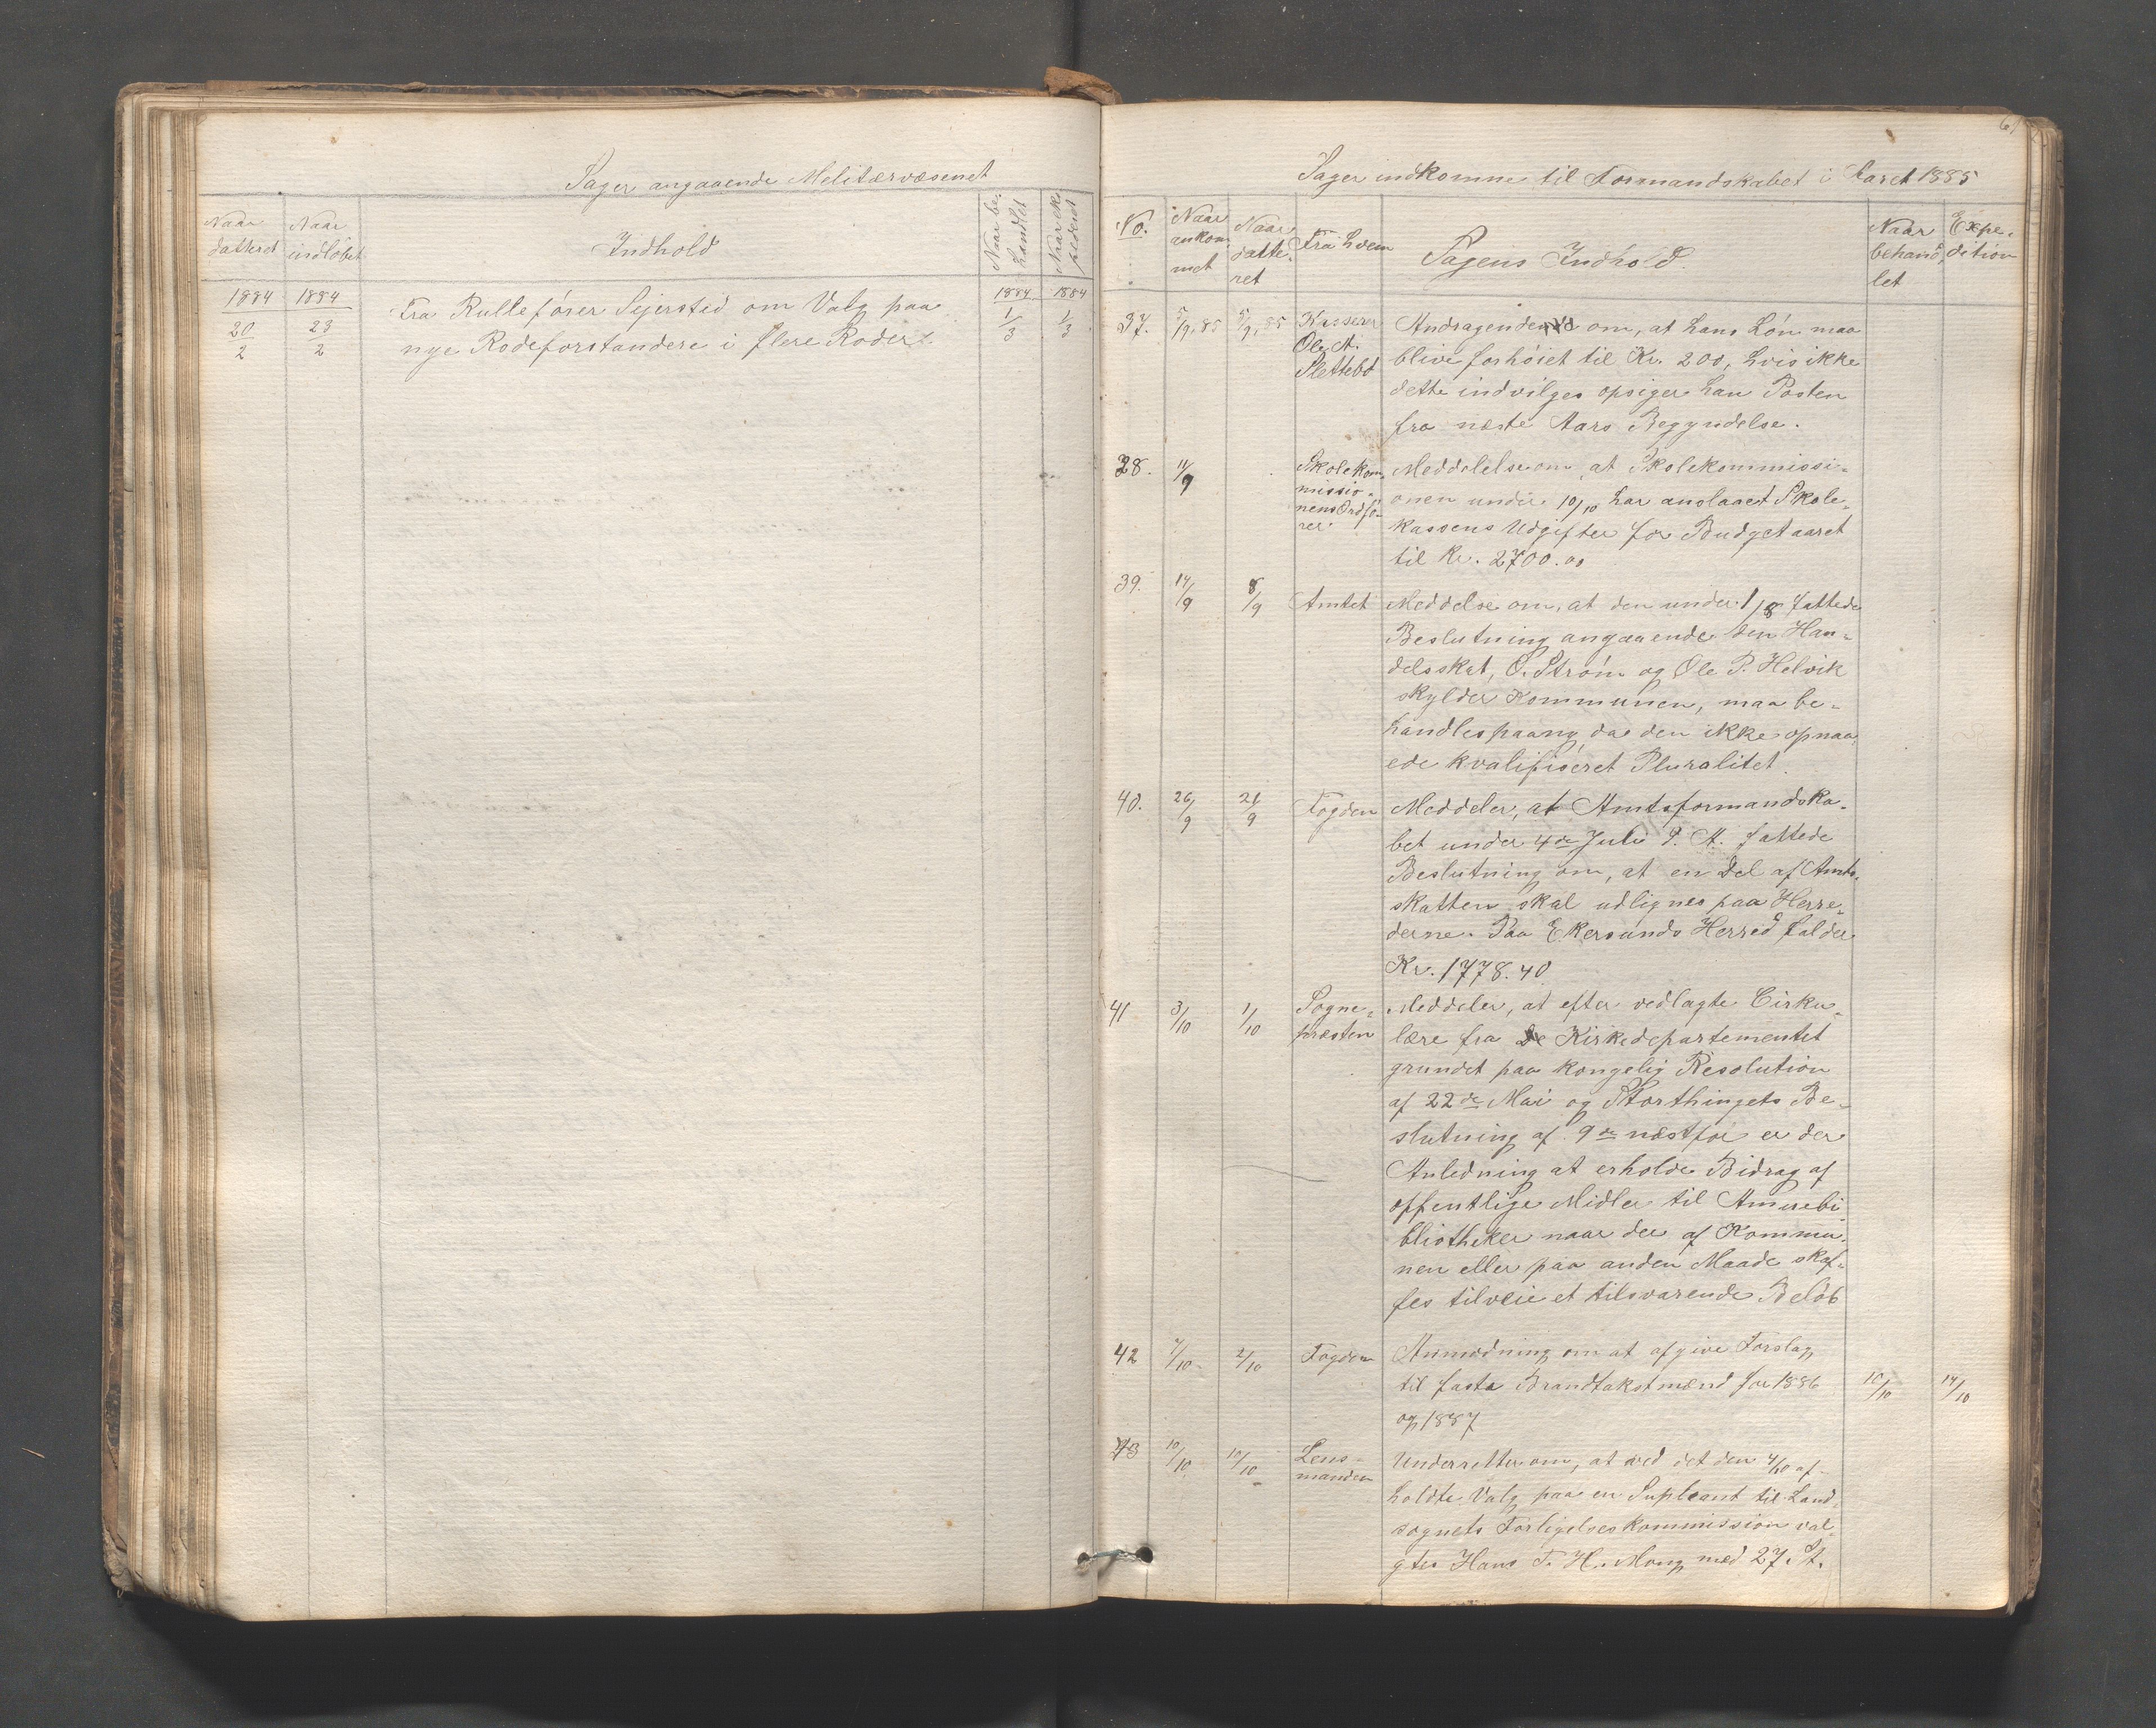 Sager angaaende Melitærvæsenet
Naar datteret
Naar indløbet
Indhold
Naar behandlet
Naar ekspederet
1884 1884 1884 1884
20/2 23/2 Fra Rullefører Sejersted om Valg paa 1/3 1/3
nye Rodeforstandere i flere Roder
61
Sager indkomne til Formandskabet i Aaret 1885
No.
Naar ankommet
Naar datteret
Fra hvem
Sagens Indhold
Naar behandlet
Expedition
37. 5/9, 85 5/9, 85 Kasserer Andragende om, at hans Løn maa
Ole A. blive forhøiet til Kr. 200, hvis ikke
Slettebø dette indvilges opsiger han Posten
fra næste Aars Begyndelse.
38. 11/9 Skolekom- Meddelelse om, at Skolekommissi-
missio- onen under 10/10 har anslaaet Skole-
nens Ordfø- kassens Udgifter for Budgetaaret
rer til Kr. 2700.00
39. 14/9 8/9 Amtet Meddelse om, at den under 1/8 fattede
Beslutning angaaende den Han-
delsskat, O. Strøm og Ole P. Helvik
skylder Kommunen, maa be-
handles paany, da den ikke opnaa-
ede kvalifiseret Pluralitet.
40. 26/9 21/9 Fogden Meddeler, at Amtsformandska-
bet under 4de Juli d. A. fattede
Beslutning om, at en Del af Amts-
skatten skal udlignes paa Herre-
derne. Paa Ekersunds Herred falder
Kr. 1778.40
41 3/10 1/10 Sogne- Meddeler, at efter vedlagte Cirku-
præsten lære fra Kirkedepartementet
grundet paa kongelig Resolution
af 22de Mai og Storthingets Be-
slutning af 9de næstfør er der
Anledning at erholde Bidrag af
offentlige Midler til Almuebi-
bliotheker naar der af Kommu-
nen eller paa anden Maade skaf-
fes tilveie et tilsvarende Beløb
42 7/10 2/10 Fogden Anmodning om at afgive Forslag
til faste Brandtakstmænd for 1886 10/10 14/10
og 1887
43 10/10 10/10 Lens- Underretter om, at ved det den 4/10 af-
manden holdte Valg paa en Supleant til Land-
sognets Forligelseskommission val-
gtes Hans T. H. Mong med 27 St.